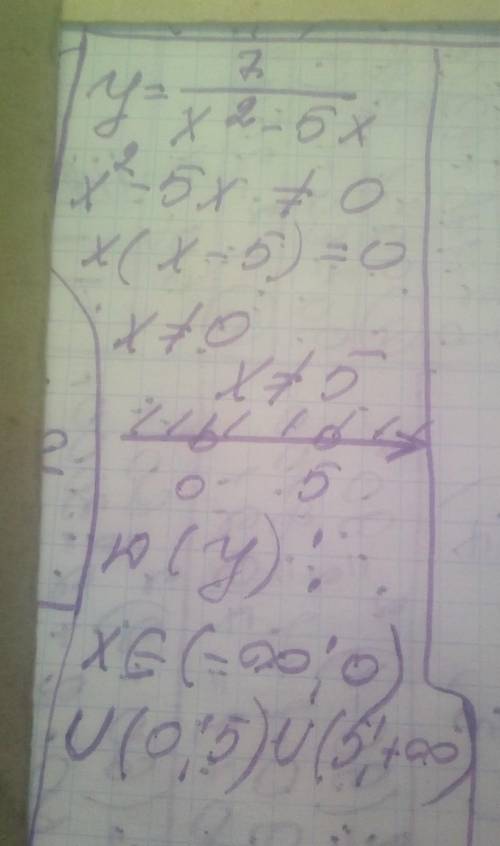 y = 7/(x² - 5x)
x² - 5x ≠ 0
x(x - 5) = 0
x ≠ 0
x ≠ 5
0 5
D(y):
x ∈ (-∞; 0)
∪ (0; 5) ∪ (5; +∞)